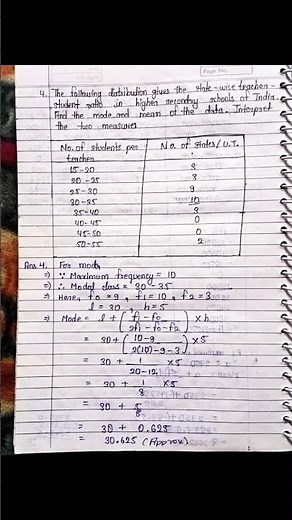 Page No.
4. The following distribution gives the state-wise teacher-
student ratio in higher secondary schools of India.
Find the mode and mean of the data. Interpret
the two measures
No. of students per teacher | No. of States/U.T.
15-20 | 3
20-25 | 8
25-30 | 9
30-35 | 10
35-40 | 3
40-45 | 0
45-50 | 0
50-55 | 2
Ans 4. For mode
⇒ ∵ Maximum frequency = 10
⇒ ∴ Modal class = 30-35
⇒ Here, f0 = 9, f1 = 10, f2 = 3
l = 30, h = 5
⇒ Mode = l + (f1 - f0 / 2f1 - f0 - f2) × h
= 30 + (10-9 / 2(10)-9-3) × 5
= 30 + 1/20-12 × 5
= 30 + 1/8 × 5
= 30 + 5/8
= 30 + 0.625
= 30.625 (Approx)